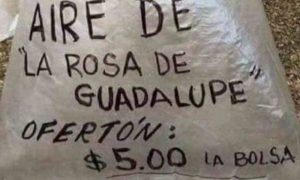 AIRE DE
"LA ROSA DE
GUADALUPE"
OFERTÓN:
$5.00 LA BOLSA